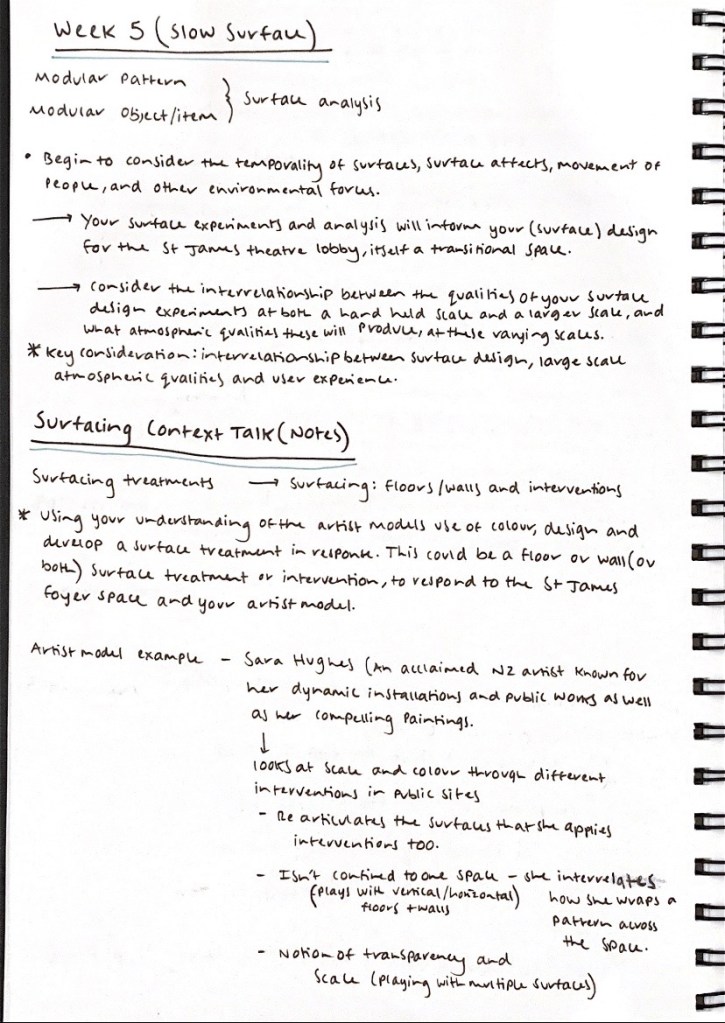 Week 5 (Slow Surface)
Modular Pattern
Modular Object/item } Surface analysis
• Begin to consider the temporality of surfaces, surface affects, movement of
People, and other environmental forces.
→ Your surface experiments and analysis will inform your (surface) design
for the St James theatre lobby, itself a transitional space.
→ Consider the interrelationship between the qualities of your surface
design experiments at both a hand held scale and a larger scale, and
what atmospheric qualities these will produce, at these varying scales.
* Key consideration: interrelationship between surface design, large scale
atmospheric qualities and user experience.
Surfacing Context Talk (Notes)
Surfacing treatments → Surfacing: floors/walls and interventions
* Using your understanding of the artist models use of colour, design and
develop a surface treatment in response. This could be a floor or wall (or
both) surface treatment or intervention, to respond to the St James
foyer space and your artist model.
Artist model example - Sara Hughes (An acclaimed NZ artist known for
her dynamic installations and public works as well
as her compelling paintings.
↓
looks at scale and colour through different
interventions in public sites
- Re articulates the surfaces that she applies
interventions too.
- Isn't confined to one space - she interrelates
(plays with vertical/horizontal) how she wraps a
floors + walls pattern across
the space.
- Notion of transparency and
Scale (playing with multiple surfaces)